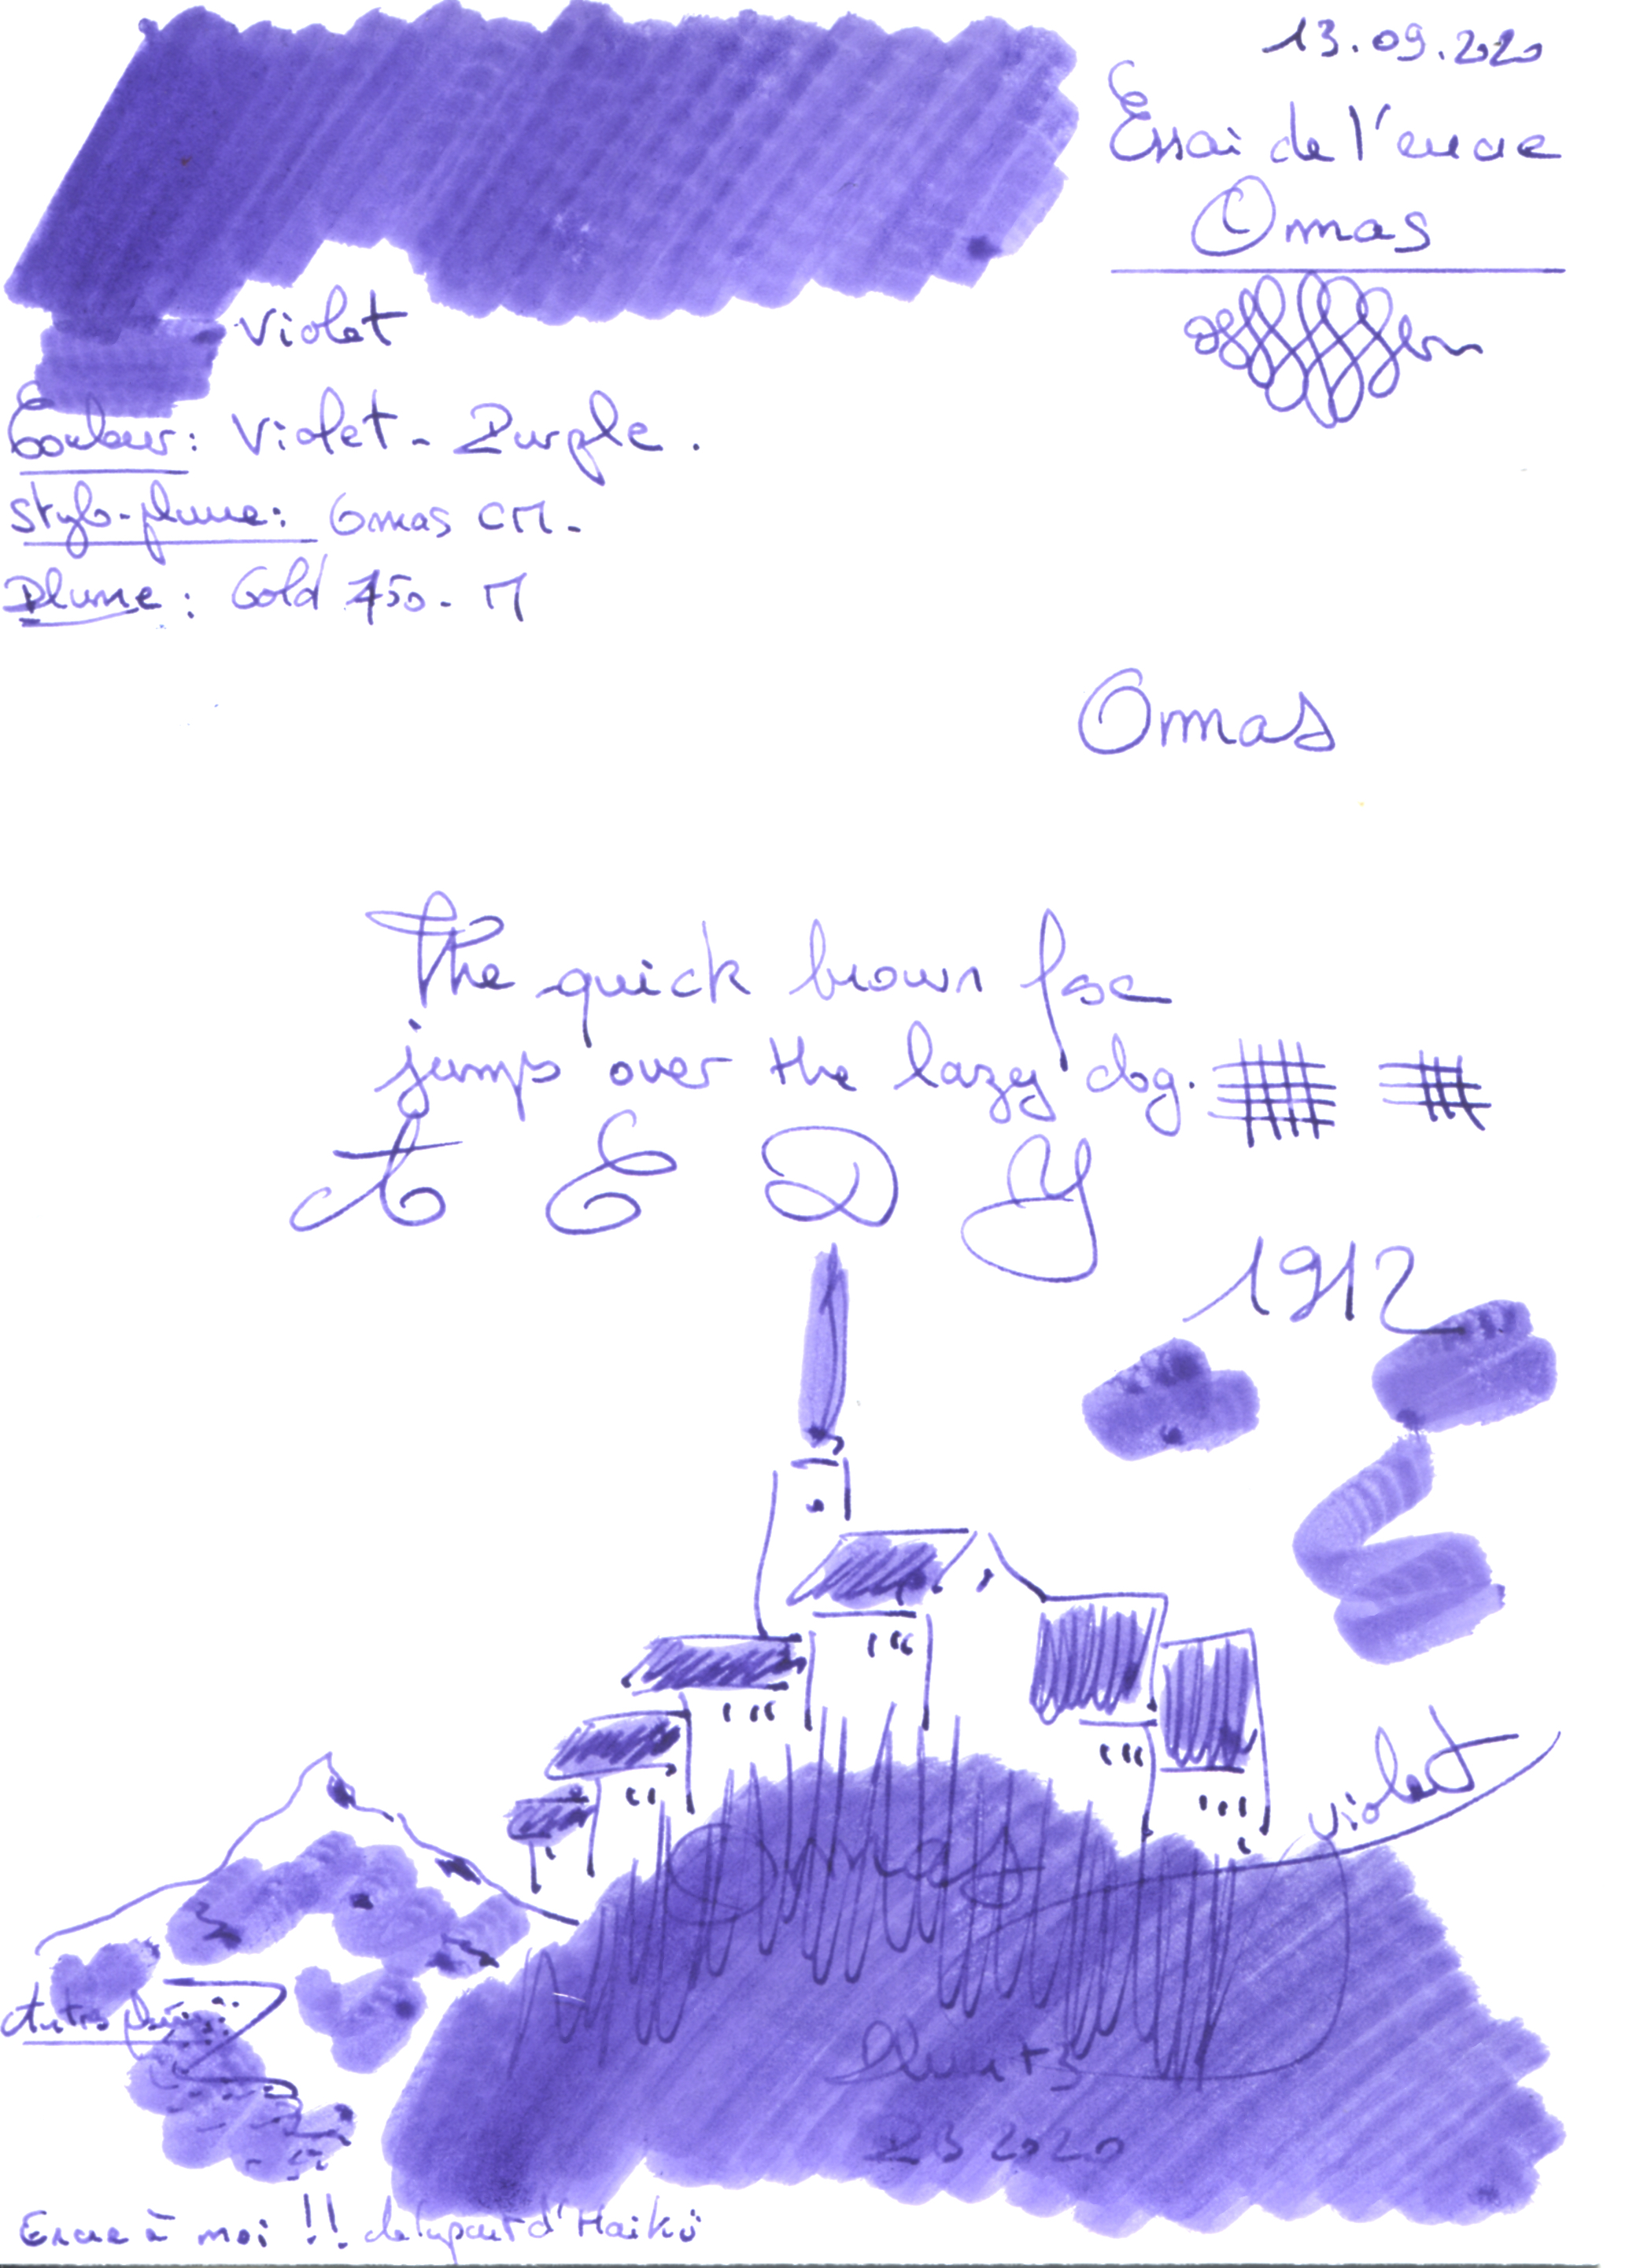 13.09.2020
Essai de l'encre
Omas
Violet
Couleur: Violet - Purple.
Stylo-plume: Omas CM-
Plume: Gold 750 - M
Omas
The quick brown fox
jumps over the lazy dog.
A E D Y
1912
violet
Omas
2020
Encre à moi !! de la part d'Haikü